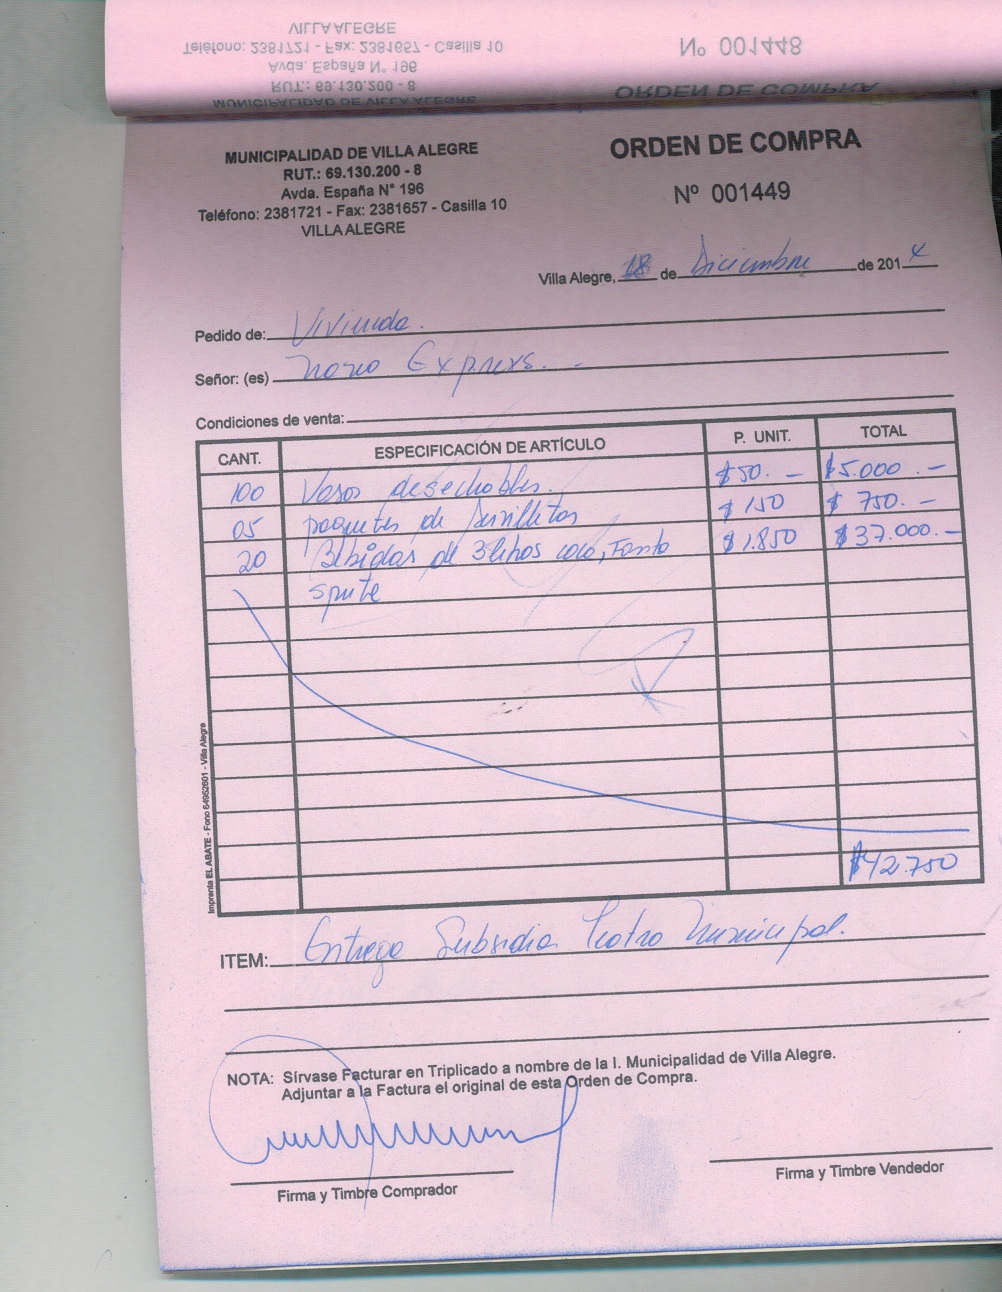 VILLA ALEGRE
Teléfono: 2381721 - Fax: 2381657 - Casilla 10
Avda. España N° 196
RUT.: 69.130.200 - 8
MUNICIPALIDAD DE VILLA ALEGRE
Nº 001448
ORDEN DE COMPRA
MUNICIPALIDAD DE VILLA ALEGRE
RUT.: 69.130.200 - 8
Avda. España N° 196
Teléfono: 2381721 - Fax: 2381657 - Casilla 10
VILLA ALEGRE
ORDEN DE COMPRA
Nº 001449
Villa Alegre, 18 de Diciembre de 2014
Pedido de: Vivienda.
Señor: (es) Express. -
Condiciones de venta:
CANT. ESPECIFICACIÓN DE ARTÍCULO P. UNIT. TOTAL
100 Vasos desechables. $50. - $5.000. -
05 paquetes de servilletas $150 $ 750. -
20 Bebidas de 3 litros coca, Fanta $1.850 $37.000. -
sprite
$42.750
ITEM: Entrega Subsidio Teatro Municipal.
NOTA: Sírvase Facturar en Triplicado a nombre de la I. Municipalidad de Villa Alegre.
Adjuntar a la Factura el original de esta Orden de Compra.
Firma y Timbre Comprador
Firma y Timbre Vendedor
Imprenta EL ABATE - Fono 64952601 - Villa Alegre